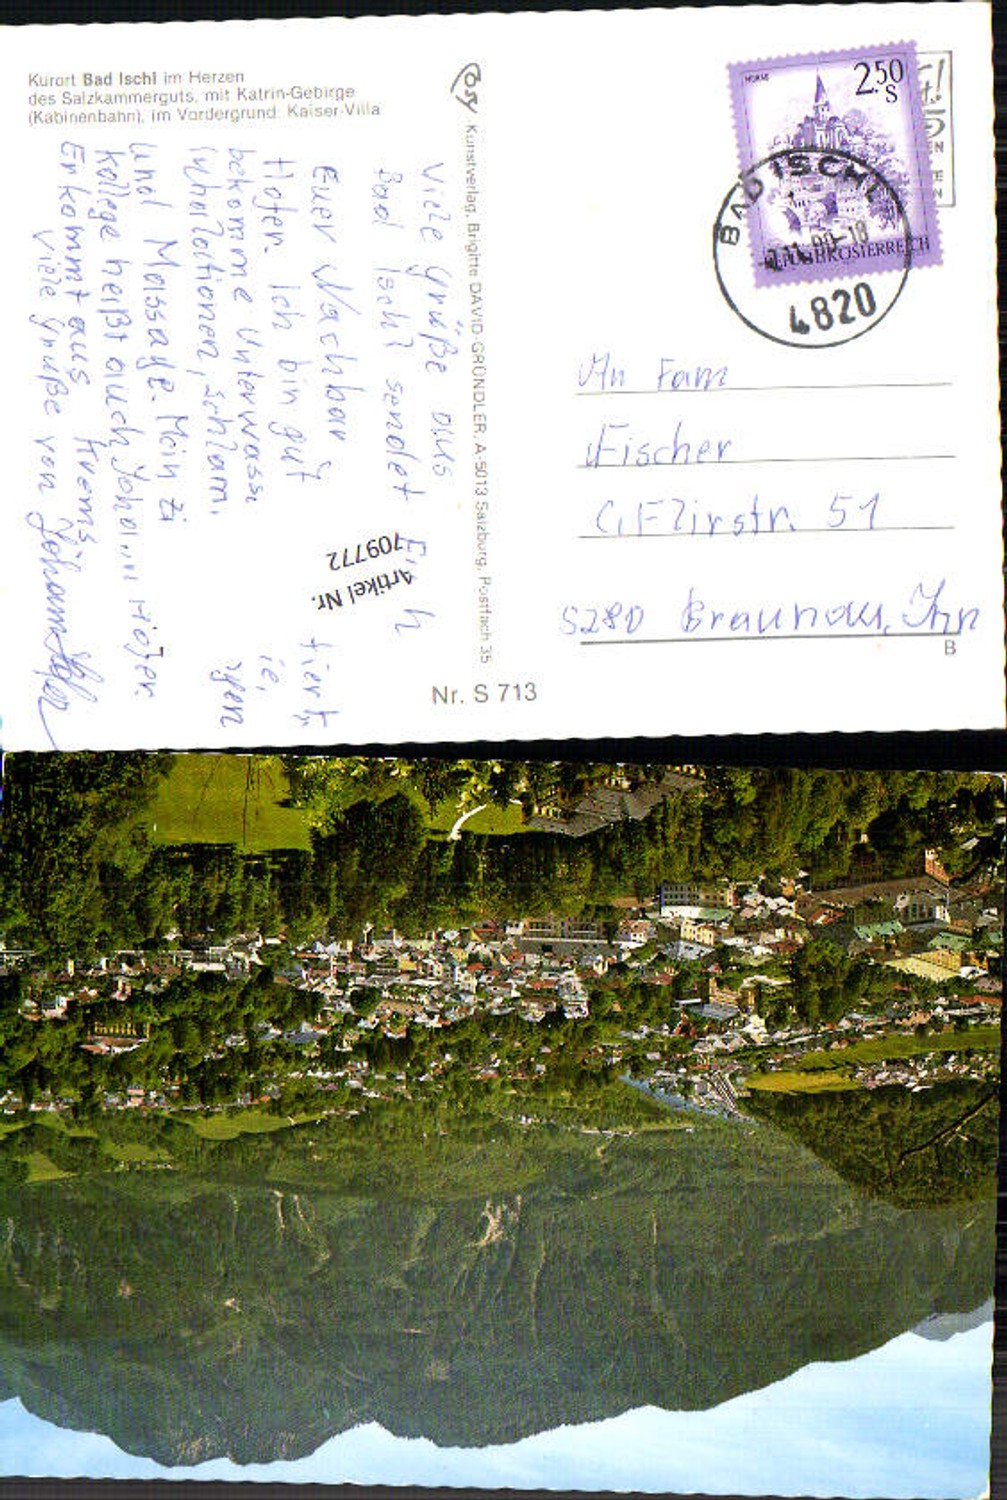 Kurort Bad Ischl im Herzen
des Salzkammerguts, mit Katrin-Gebirge
(Kabinenbahn), im Vordergrund: Kaiser-Villa
Viele Grüße aus
Bad Ischl sendet
Euer Nachbar
Hofer. Ich bin gut
bekomme Unterwasse
Inhalationen, Schlam.
und Massage. Mein Zi
kollege heißt auch Johann Hofer.
Er kommt aus Krems
Viele Grüße von Johann Hofer
Artikel Nr.
709772
Cosy Kunstverlag, Brigitte DAVID-GRÜNDLER, A-5013 Salzburg, Postfach 35
Nr. S 713
2.50
S
REPUBLIK ÖSTERREICH
BAD ISCHL
4820
An Fam
Fischer
C. Flirstr. 51
5280 Braunau, Inn
B